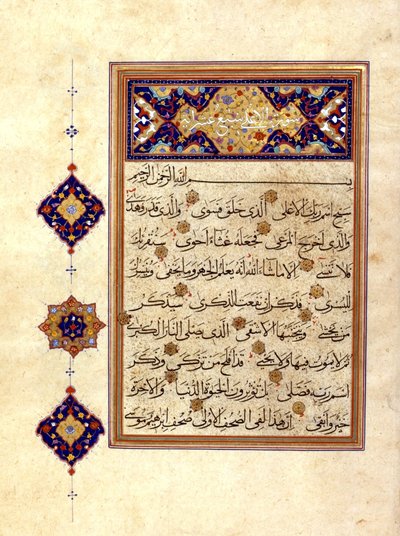 سورة الاعلى تسع عشر اية
بسم الله الرحمن الرحيم
سبح اسم ربك الاعلى الذي خلق فسوى والذي قدر فهدى
والذي اخرج المرعى فجعله غثاء احوى سنقرئك
فلا تنسى الا ما شاء الله انه يعلم الجهر وما يخفى ونيسرك
لليسرى فذكر ان نفعت الذكرى سيذكر
من يخشى ويتجنبها الاشقى الذي يصلى النار الكبرى
ثم لا يموت فيها ولا يحيى قد افلح من تزكى وذكر
اسم ربه فصلى بل تؤثرون الحيوة الدنيا والاخرة
خير وابقى ان هذا لفي الصحف الاولى صحف ابرهيم وموسى